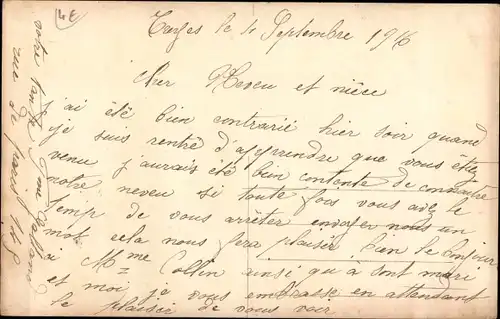 4E
Torges le 4 Septembre 1916
Cher Neveu et nièce
j'ai été bien contrarié hier soir quand
je suis rentré d'apprendre que vous étiez
venu j'aurais été bien contente de connaître
notre neveu si toute fois vous avez le
temp de vous arrêter envoyer nous un
mot cela nous fera plaisir bien le bonjour
à Mme Collin ainsi qu'à son mari
et moi je vous embrasse en attendant
le plaisir de vous voir.
votre tante
rue de 14 8